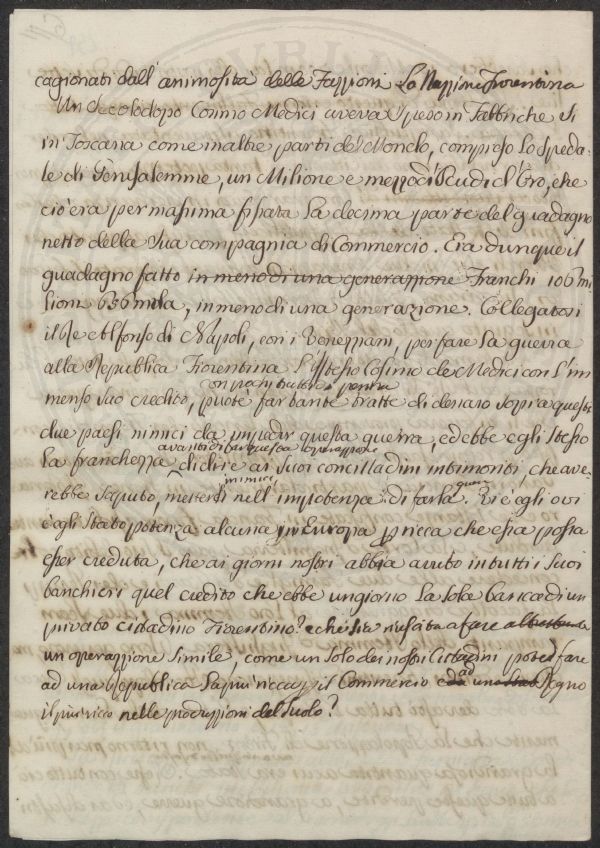 cagionati dall' animosità delle Fazzioni La Nazzione Fiorentina
Un Secolo dopo Cosimo Medici aveva Speso in Fabbriche Si
in Toscana come in altre parti del Mondo, compreso Lo Speda-
le di Gerusalemme, un Milione e mezzo di Scudi d'Oro, che
ciò era per massima fissata La decima parte del guadagno
netto della Sua compagnia di Commercio. Era dunque il
guadagno fatto in meno di una generazzione Franchi 106 mi
lioni 636 mila, in meno di una generazione. Collegatosi
il Re Alfonso di Napoli, con i Veneziani, per fare La guerra
alla Republica Fiorentina L'istesso Cosimo de Medici con L'im
menso Suo credito, puotè far tante tratte di denaro sopra questi
due paesi nimici da impedir questa guerra, ed ebbe egli Stesso
avanti di far questa operazzione
La franchezza di dire ai Suoi concittadini intimoriti, che ave-
nimici guerra
rebbe Saputo, mettersi nell' impotenza di farla. Vi è egli o vi
è egli Stato potenza alcuna in Europa ricca che essa possa
esser creduta, che ai giorni nostri abbia avuto in tutti i Suoi
banchieri quel credito che ebbe un giorno La sola banca di un
privato cittadino Fiorentino? e che sia riuscita a fare
un operazzione Simile, come un Solo dei nostri Cittadini potea fare
ad una Republica La più ricca il Commercio ad un Regno
il più ricco nelle produzzioni del Suolo?